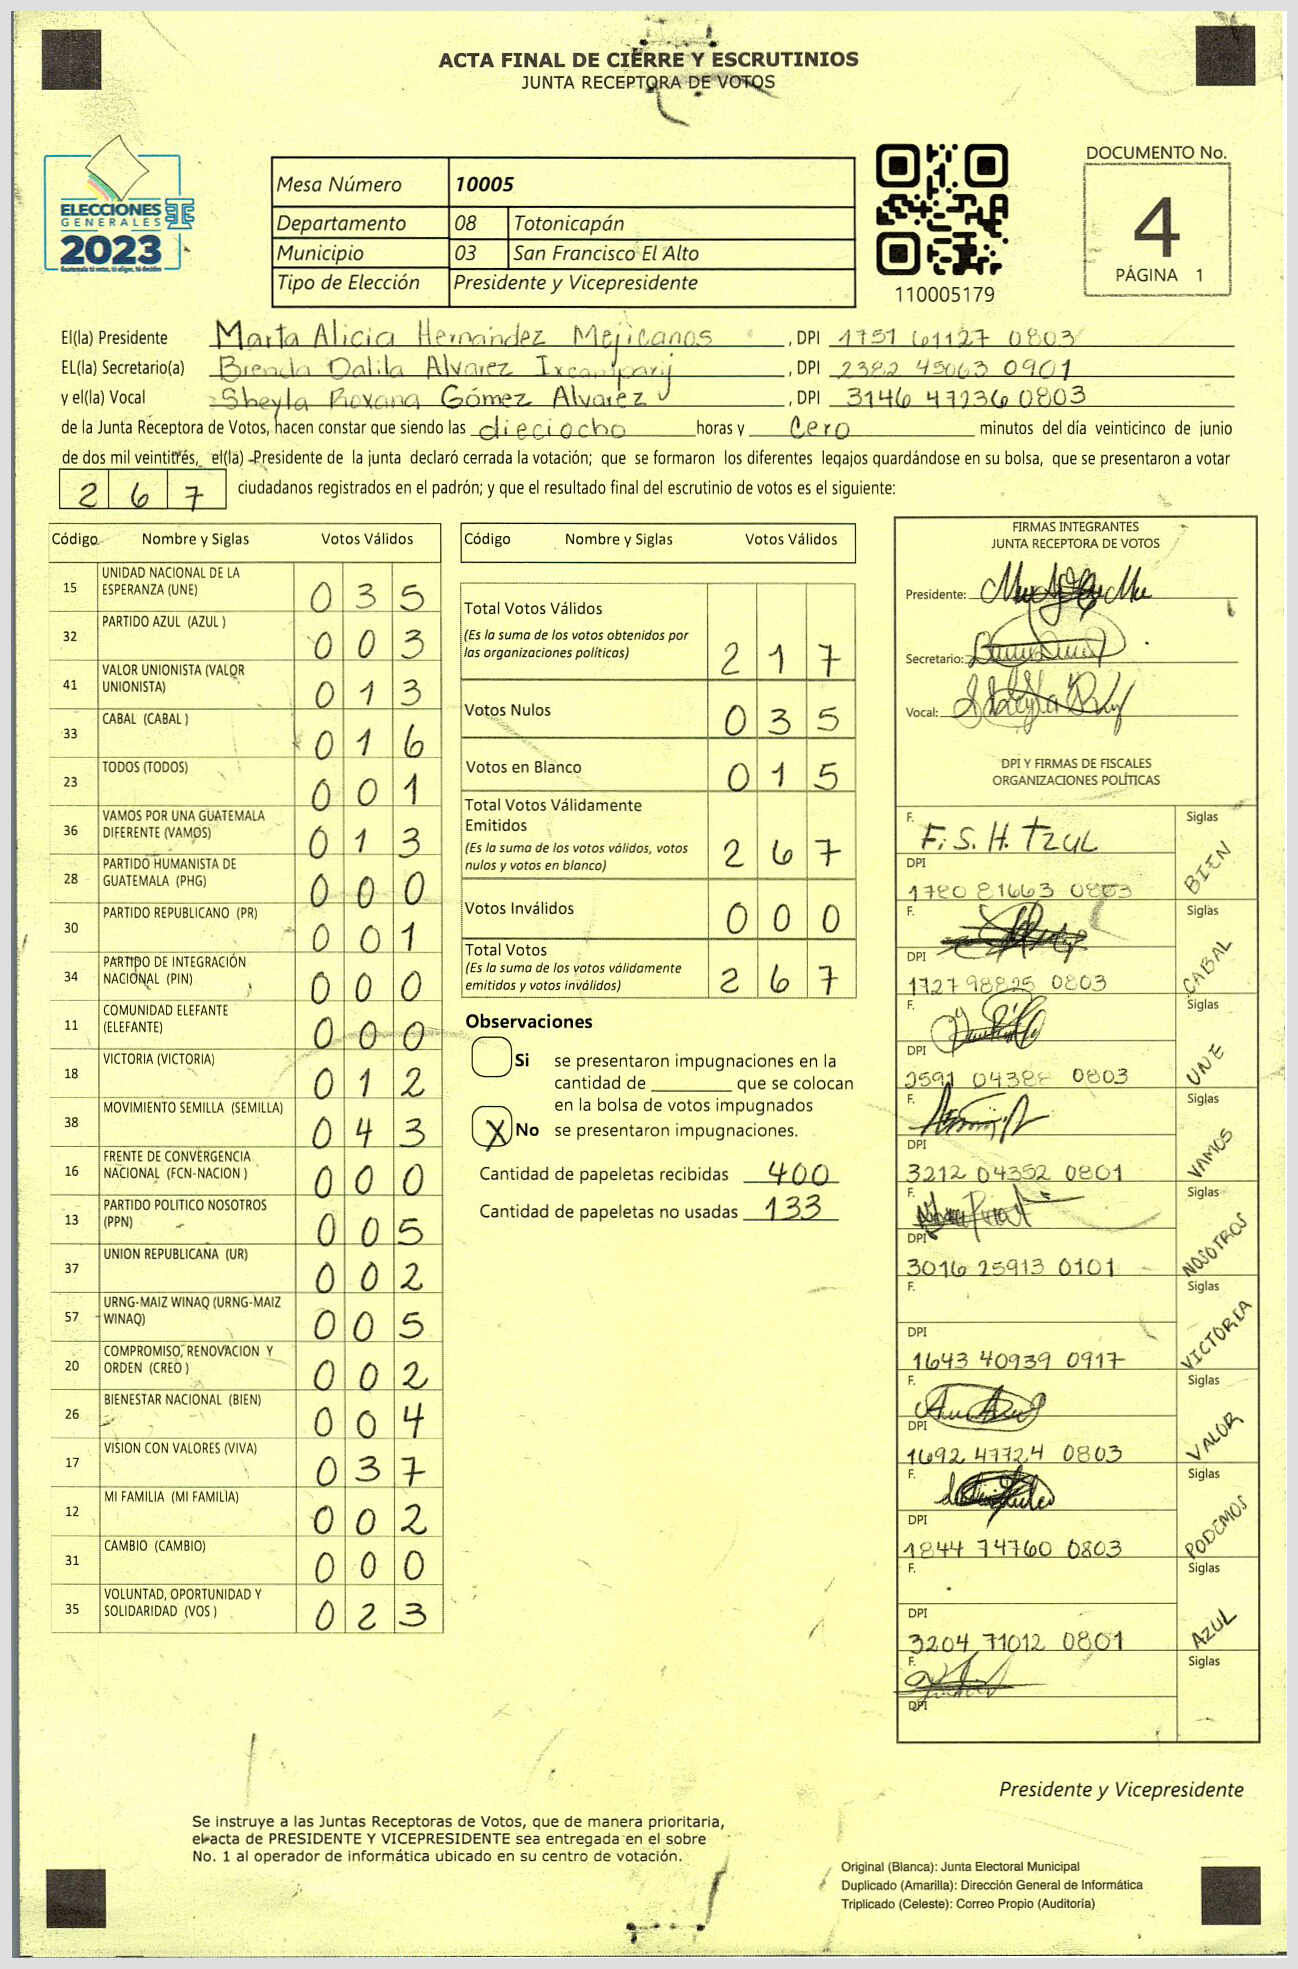 ACTA FINAL DE CIERRE Y ESCRUTINIOS
JUNTA RECEPTORA DE VOTOS
ELECCIONES
GENERALES
2023
Mesa Número 10005
Departamento 08 Totonicapán
Municipio 03 San Francisco El Alto
Tipo de Elección Presidente y Vicepresidente
110005179
DOCUMENTO No.
4
PÁGINA 1
El(la) Presidente Marta Alicia Hernández Mejicanos, DPI 1751 61127 0803
EL(la) Secretario(a) Brenda Dalila Alvarez, DPI 2382 45063 0901
y el(la) Vocal Sheyla Roxana Gómez Alvarez, DPI 3146 47236 0803
de la Junta Receptora de Votos, hacen constar que siendo las dieciocho horas y Cero minutos del día veinticinco de junio
de dos mil veintitrés, el(la) Presidente de la junta declaró cerrada la votación; que se formaron los diferentes legajos guardándose en su bolsa, que se presentaron a votar
267 ciudadanos registrados en el padrón; y que el resultado final del escrutinio de votos es el siguiente:
Código Nombre y Siglas Votos Válidos
15 UNIDAD NACIONAL DE LA ESPERANZA (UNE) 035
32 PARTIDO AZUL (AZUL ) 003
41 VALOR UNIONISTA (VALOR UNIONISTA) 013
33 CABAL (CABAL ) 016
23 TODOS (TODOS) 001
36 VAMOS POR UNA GUATEMALA DIFERENTE (VAMOS) 013
28 PARTIDO HUMANISTA DE GUATEMALA (PHG) 000
30 PARTIDO REPUBLICANO (PR) 001
34 PARTIDO DE INTEGRACIÓN NACIONAL (PIN) 000
11 COMUNIDAD ELEFANTE (ELEFANTE) 000
18 VICTORIA (VICTORIA) 012
38 MOVIMIENTO SEMILLA (SEMILLA) 043
16 FRENTE DE CONVERGENCIA NACIONAL (FCN-NACION ) 000
13 PARTIDO POLITICO NOSOTROS (PPN) 005
37 UNION REPUBLICANA (UR) 002
57 URNG-MAIZ WINAQ (URNG-MAIZ WINAQ) 005
20 COMPROMISO, RENOVACION Y ORDEN (CREO ) 002
26 BIENESTAR NACIONAL (BIEN) 004
17 VISION CON VALORES (VIVA) 037
12 MI FAMILIA (MI FAMILIA) 002
31 CAMBIO (CAMBIO) 000
35 VOLUNTAD, OPORTUNIDAD Y SOLIDARIDAD (VOS ) 023
Código Nombre y Siglas Votos Válidos
Total Votos Válidos
(Es la suma de los votos obtenidos por
las organizaciones políticas) 217
Votos Nulos 035
Votos en Blanco 015
Total Votos Válidamente
Emitidos
(Es la suma de los votos válidos, votos
nulos y votos en blanco) 267
Votos Inválidos 000
Total Votos
(Es la suma de los votos válidamente
emitidos y votos inválidos) 267
Observaciones
Si se presentaron impugnaciones en la
cantidad de ________ que se colocan
en la bolsa de votos impugnados
X No se presentaron impugnaciones.
Cantidad de papeletas recibidas 400
Cantidad de papeletas no usadas 133
FIRMAS INTEGRANTES
JUNTA RECEPTORA DE VOTOS
Presidente:
Secretario:
Vocal:
DPI Y FIRMAS DE FISCALES
ORGANIZACIONES POLÍTICAS
F. F. S. H. TZUL Siglas BIEN
DPI 1780 81663 0803
F. Siglas CABAL
DPI 1727 98825 0803
F. Siglas UNE
DPI 2591 04388 0803
F. Siglas VAMOS
DPI 3212 04352 0801
F. Siglas NOSOTROS
DPI 3016 25913 0101
F. Siglas VICTORIA
DPI 1643 40939 0917
F. Siglas VALOR
DPI 1692 47724 0803
F. Siglas PODEMOS
DPI 1844 74760 0803
F. Siglas AZUL
DPI 3204 71012 0801
F. Siglas
DPI
Presidente y Vicepresidente
Se instruye a las Juntas Receptoras de Votos, que de manera prioritaria,
el acta de PRESIDENTE Y VICEPRESIDENTE sea entregada en el sobre
No. 1 al operador de informática ubicado en su centro de votación.
Original (Blanca): Junta Electoral Municipal
Duplicado (Amarilla): Dirección General de Informática
Triplicado (Celeste): Correo Propio (Auditoría)